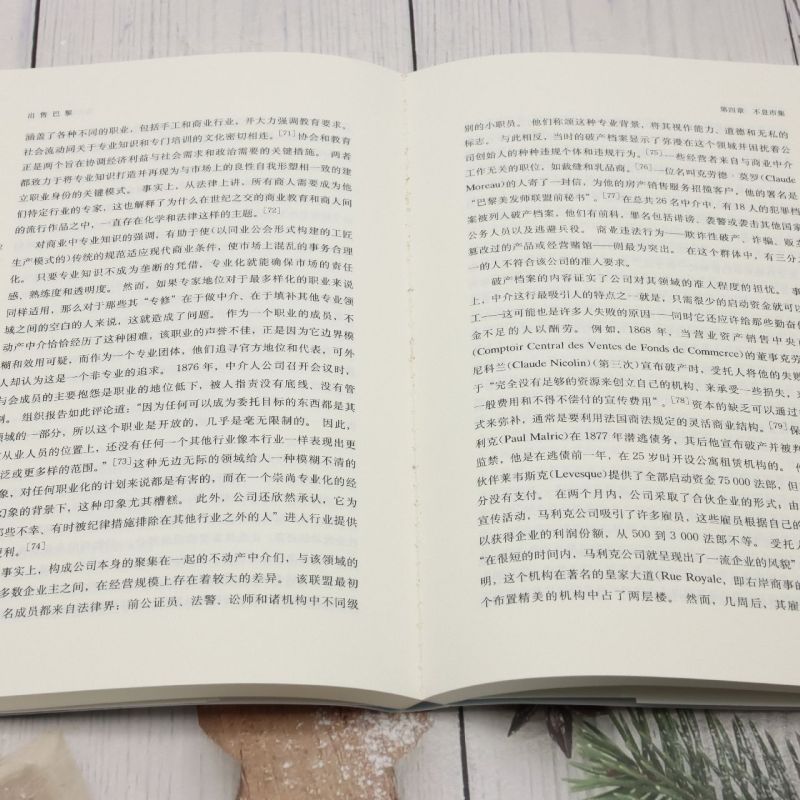 出售巴黎
涵盖了各种不同的职业，包括手工和商业行业，并大力强调教育要求。
社会流动同关于专业知识和专门培训的文化密切相连。[71]协会和教育
正是两个旨在协调经济利益与社会需求和政治需要的关键措施。 两者
都致力于将专业知识打造并再现为与市场上的良性自我形塑相一致的建
立职业身份的关键模式。 事实上，从法律上讲，所有商人需要成为他
们特定行业的专家，这也解释了为什么在世纪之交的商业教育和商人间
的流行作品之中，一直存在化学和法律这样的主题。[72]
对商业中专业知识的强调，有助于使(以同业公会形式构建的工匠
生产模式的)传统的规范适应现代商业条件，使市场上混乱的事务合理
化。 只要专业知识不成为垄断的凭借，专业化就能确保市场的责任
感、熟练度和透明度。 然而，如果专家地位对于最多样化的职业来说
同样适用，那么对于那些其“专修”在于做中介、在于填补其他专业领
域之间的空白的人来说，这就造成了问题。 作为一个职业的成员，不
动产中介恰恰经历了这种困难，该职业的声誉不佳，正是因为它边界模
糊和效用可疑，而作为一个专业团体，他们追寻官方地位和代表，可外
人却认为这是一个非专业的追求。 1876 年，中介人公司召开会议时，
与会成员的主要抱怨是职业的地位低下，被人指责没有底线、没有管
制。 组织报告如此评论道：“因为任何可以成为委托目标的东西都是其
领域的一部分，所以这个职业是开放的，几乎是毫无限制的。 因此，
从业人员的位置上，还没有任何一个其他行业像本行业一样表现出更
泛或更多样的范围。”[73]这种无边无际的领域给人一种模糊不清的
象，对任何职业化的计划来说都是有害的，而在一个崇尚专业化的经
幻象的背景下，这种印象尤其糟糕。 此外，公司还欣然承认，它为
那些不幸、有时被纪律措施排除在其他行业之外的人”进入行业提供
便利。[74]
事实上，构成公司本身的聚集在一起的不动产中介们，与该领域的
多数企业主之间，在经营规模上存在着较大的差异。 该联盟最初
名成员都来自法律界；前公证员、法警、讼师和诸机构中不同级
第四章 不息市集
别的小职员。 他们称颂这种专业背景，将其视作能力、道德和无私的
标志。 与此相反，当时的破产档案显示了弥漫在这个领域并困扰着公
司创始人的种种违规个体和违规行为。[75]一些经营者来自与商业中介
工作无关的职位，如裁缝和乳品商。[76]一位名叫克劳德·莫罗(Claude
Moreau)的人寄了一封信，为他的房产销售服务招揽客户，他的署名是
“巴黎美发师联盟前秘书”。[77]在总共 26 名中介中，有 18 人的犯罪档
案被列入破产档案，他们有前科，罪名包括诽谤、袭警或袭击其他国家
公务人员以及逃避兵役。 商业违法行为——欺诈性破产、诈骗、贩卖
篡改过的产品或经营赌馆——则最为突出。 在这个群体中，有三分
一的人不符合该公司的准入要求。
破产档案的内容证实了公司对其领域的准入程度的担忧。 事
上，中介这行最吸引人的特点之一就是，只需很少的启动资金就可以
工——这可能也是许多人失败的原因——同时它还应许给那些勤劳
金不足的人以酬劳。 例如，1868 年，当营业资产销售中央
(Comptoir Central des Ventes de Fonds de Commerce)的董事克劳
尼科兰(Claude Nicolin)(第三次)宣布破产时，受托人将他的失
于“完全没有足够的资源来创立自己的机构、来承受一些损失，
一般费用和不得不偿付的宣传费用”。[78]资本的缺乏可以通过
式来弥补，通常是要利用法国商法规定的灵活商业结构。[79]保
利克(Paul Malric)在 1877 年潜逃债务，其后他宣布破产并被判
监禁，他是在逃债前一年，在 25 岁时开设公寓租赁机构的。
伙伴莱韦斯克(Levesque)提供了全部启动资金 75 000 法郎，但
分没有支付。 在两个月内，公司采取了合伙企业的形式；由
宣传活动，马利克公司吸引了许多雇员，这些雇员根据自己的
以获得企业的利润份额，从 500 到 3 000 法郎不等。 受托人
“在很短的时间内，马利克公司就呈现出了一流企业的风貌”
明，这个机构在著名的皇家大道(Rue Royale，即右岸商事的
个布置精美的机构中占了两层楼。 然而，几周后，其雇